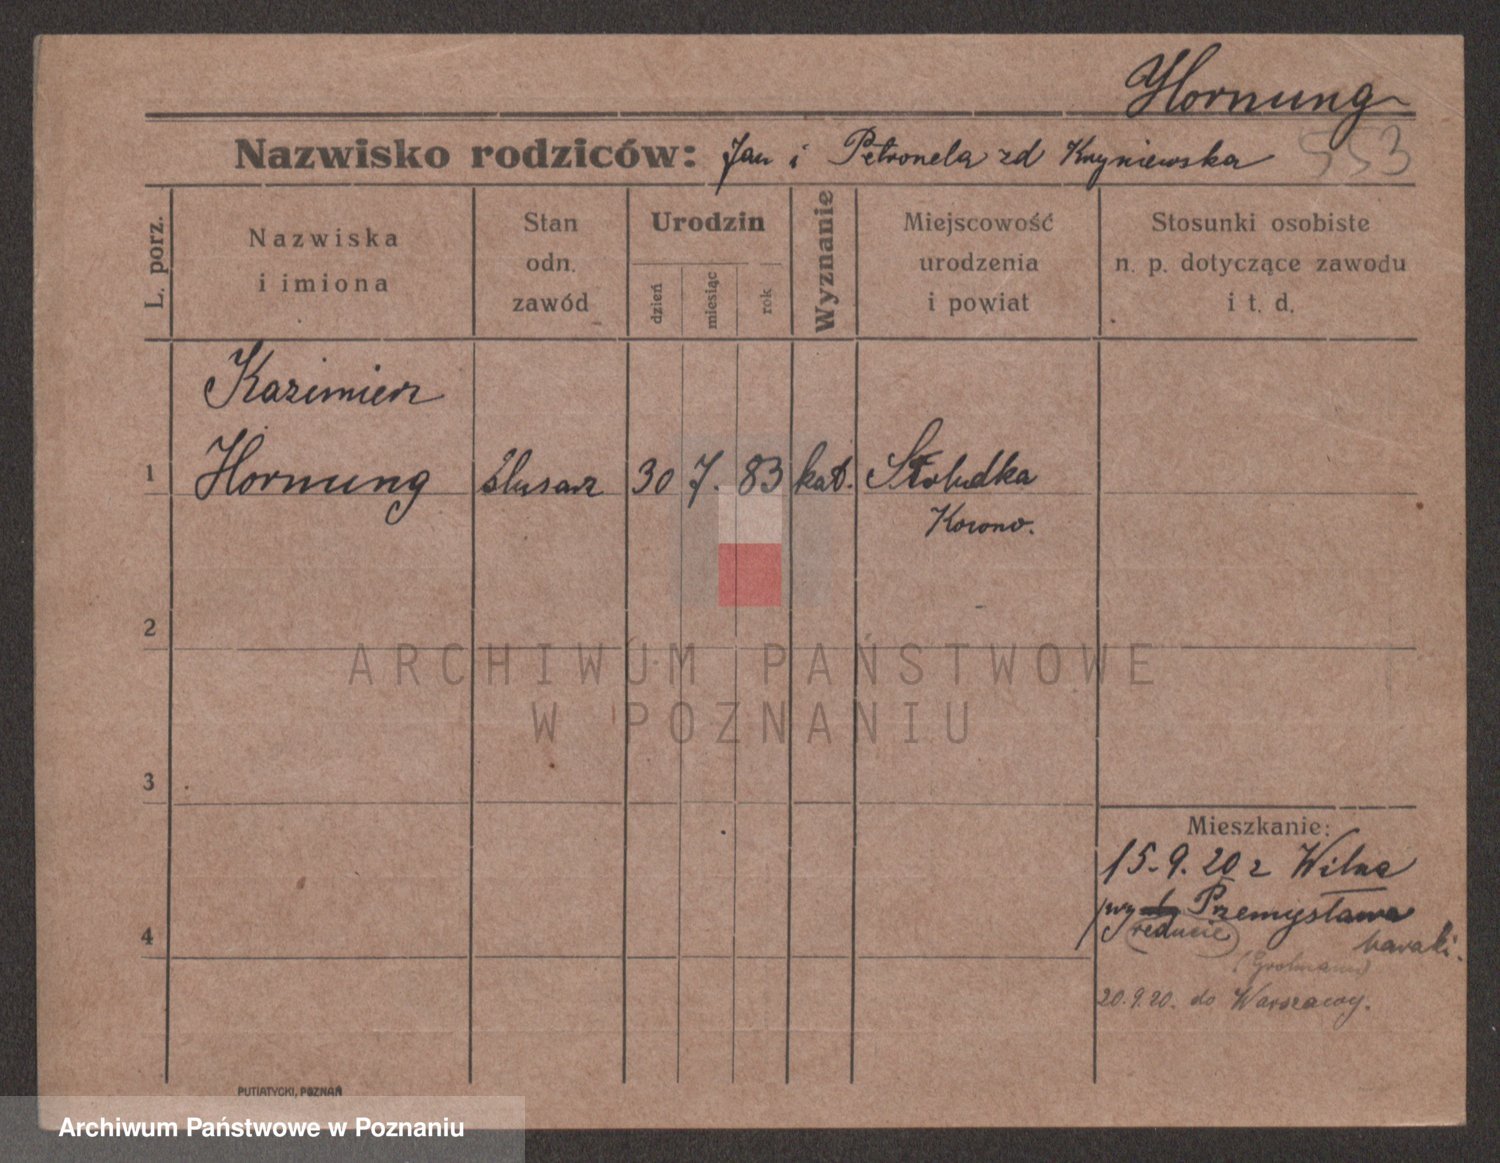 Hornung
553
Nazwisko rodziców: Jan i Petronela zd Kryniewska
L. porz.
Nazwiska
i imiona
Stan
odn.
zawód
Urodzin
dzień
miesiąc
rok
Wyznanie
Miejscowość
urodzenia
i powiat
Stosunki osobiste
n. p. dotyczące zawodu
i t. d.
Kazimierz
1 Hornung ślusarz 30 7. 83 kat.
Korono.
2
ARCHIWUM PAŃSTWOWE
W POZNANIU
3
Mieszkanie:
15.9.20 z Wilna
przy Przemysława
reducie baraki.
(Grolmann)
4
20.9.20. do Warszawy.
PUTIATYCKI, POZNAŃ
Archiwum Państwowe w Poznaniu